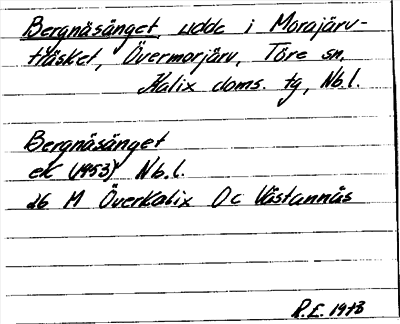 Bergnäsänget, udde i Morajärv-
träsket, Övermorjärv, Töre sn,
Kalix doms. tg, Nb.l.
Bergnäsänget
ek (1953) Nb.l.
26 M Överkalix 0c Västannäs
R.E. 1973